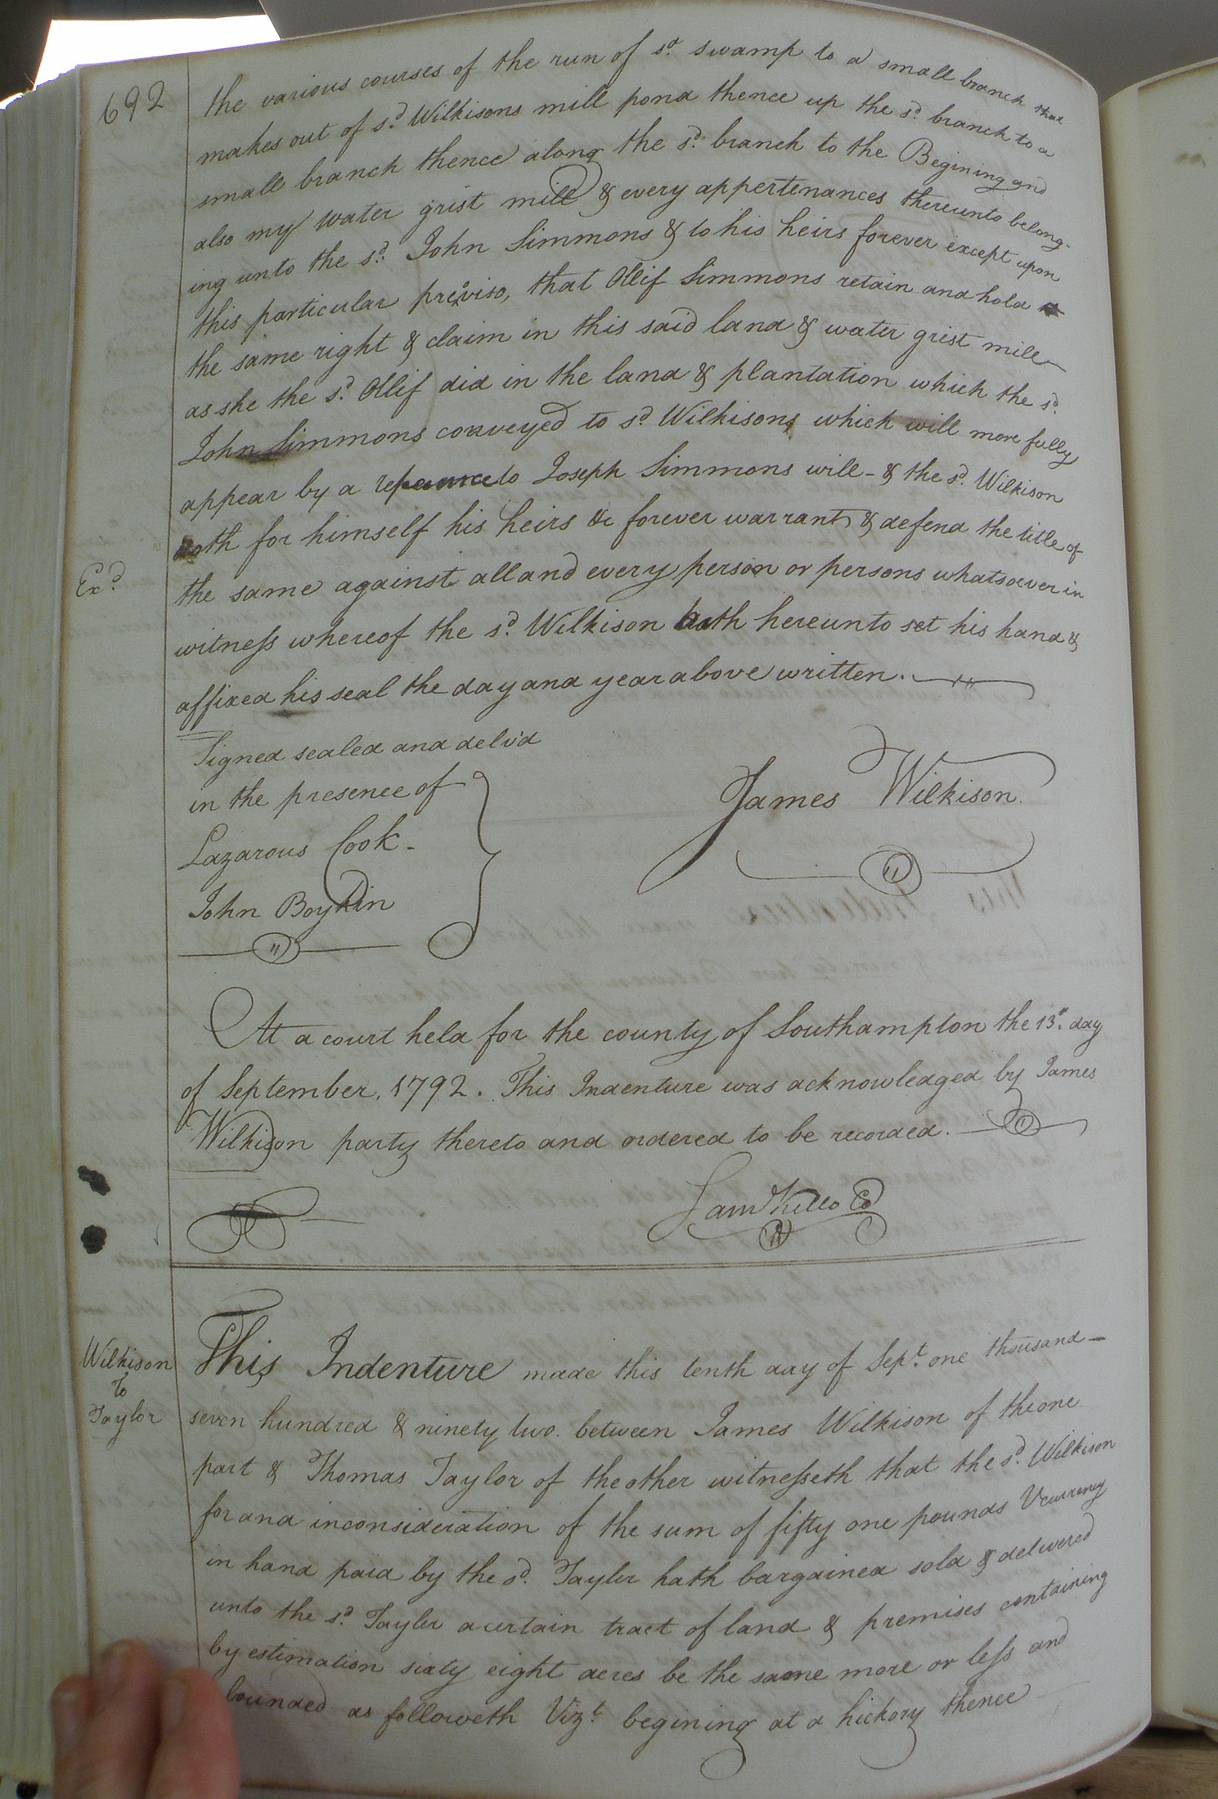 692
the various courses of the run of sd. swamp to a small branch that
makes out of sd. Wilkisons mill pond thence up the sd. branch to a
small branch thence along the sd. branch to the Begining and
also my water grist mill & every appertenances thereunto belong-
ing unto the sd. John Simmons & to his heirs forever except upon
this particular proviso, that Ollif Simmons retain and hold
the same right & claim in this said land & water grist mill
as she the sd. Ollif did in the land & plantation which the sd.
John Simmons conveyed to sd Wilkisons which will more fully
appear by a to Joseph Simmons will - & the sd. Wilkison
doth for himself his heirs &c forever warrant & defend the title of
Exd.
the same against all and every person or persons whatsoever in
witness whereof the sd. Wilkison hath hereunto set his hand &
affixed his seal the day and year above written.
Signed sealed and deliv'd
in the presence of
Lazarous Cook -
John Boykin
James Wilkison.
At a court held for the county of Southampton the 13th. day
of September, 1792. This Indenture was acknowledged by James
Wilkison party thereto and ordered to be recorded.
Saml Kello
Wilkison
To
Taylor
This Indenture made this tenth day of Sept. one thousand -
seven hundred & ninety two. between James Wilkison of the one
part & Thomas Taylor of the other witnesseth that the sd. Wilkison
for and in consideration of the sum of fifty one pounds Vcurrency
in hand paid by the sd. Tayler hath bargained sold & delivered
unto the sd. Tayler a certain tract of land & premises containing
by estimation sixty eight acres be the same more or less and
bounded as followeth Vizt. begining at a hickory thence